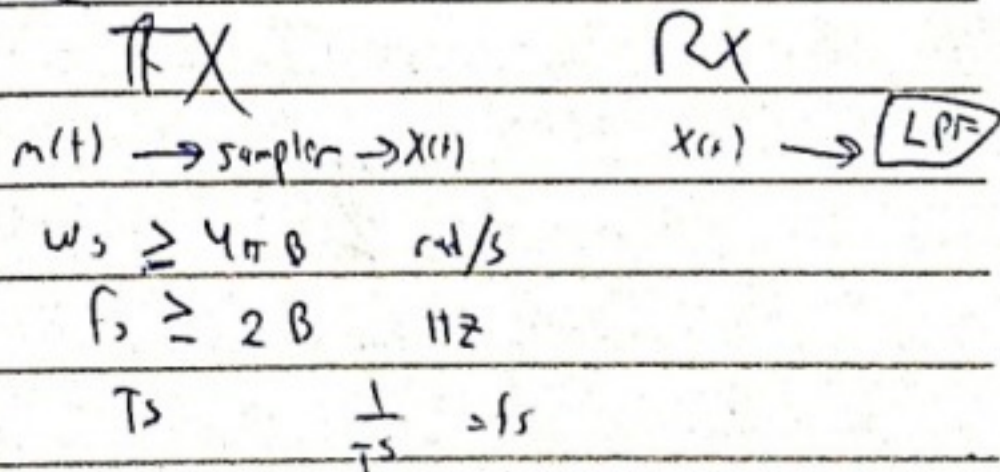 TX Rx
m(t) → sampler → X(t) X(t) → LPF
ws ≥ 4π B rad/s
fs ≥ 2 B Hz
Ts 1/Ts = fs